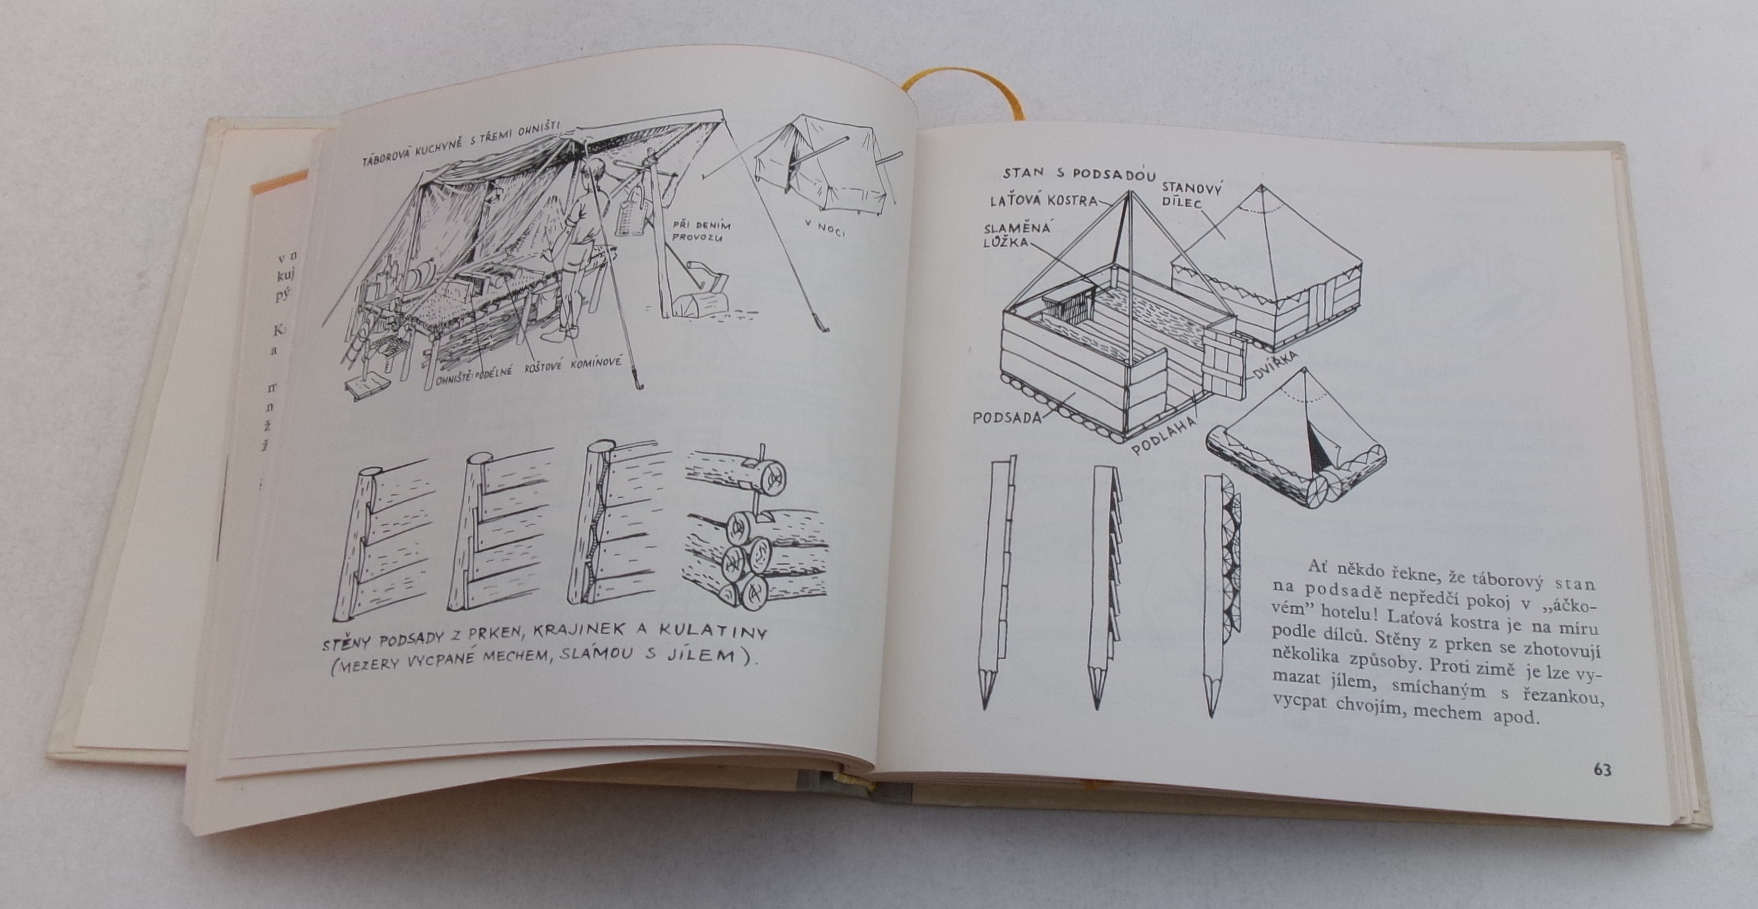 v n
kuj
pý
K
a
n
ž
ž
TÁBOROVÁ KUCHYNĚ S TŘEMI OHNIŠTI
PŘI DENÍM
PROVOZU
V NOCI
OHNIŠTĚ: PODÉLNÉ ROŠTOVÉ KOMÍNOVÉ
STĚNY PODSADY Z PRKEN, KRAJINEK A KULATINY
(MEZERY VYCPANÉ MECHEM, SLÁMOU S JÍLEM).
STAN S PODSADOU
LAŤOVÁ KOSTRA
STANOVÝ
DÍLEC
SLAMĚNÁ
LŮŽKA
DVÍŘKA
PODSADA
PODLAHA
Ať někdo řekne, že táborový stan
na podsadě nepředčí pokoj v „áčko-
vém” hotelu! Laťová kostra je na míru
podle dílců. Stěny z prken se zhotovují
několika způsoby. Proti zimě je lze vy-
mazat jílem, smíchaným s řezankou,
vycpat chvojím, mechem apod.
63